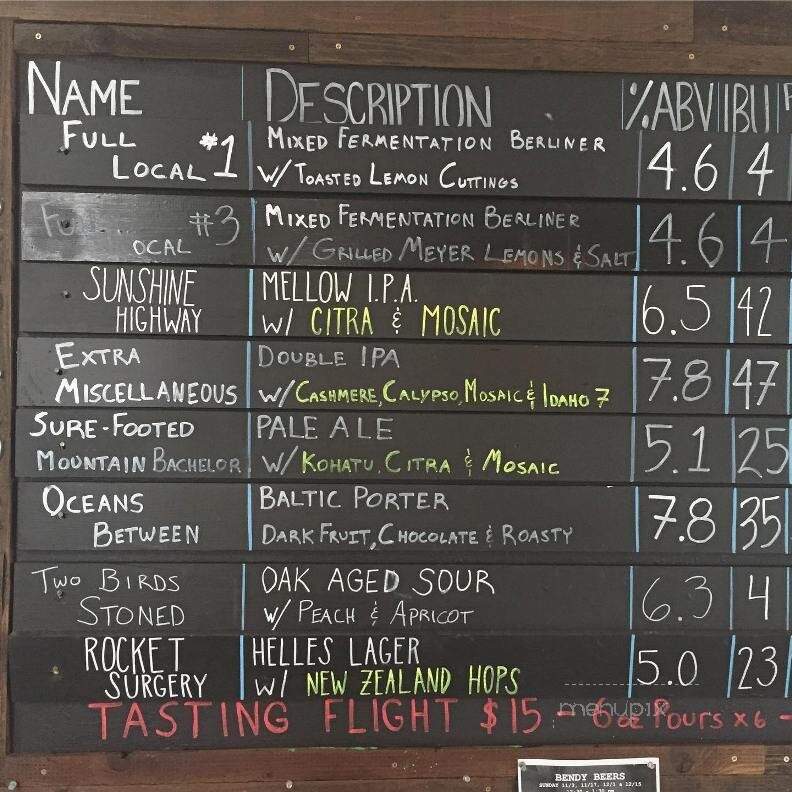 NAME DESCRIPTION %ABV IBU
FULL MIXED FERMENTATION BERLINER
LOCAL #1 W/ TOASTED LEMON CUTTINGS 4.6 4
#3 MIXED FERMENTATION BERLINER
OCAL W/ GRILLED MEYER LEMONS & SALT 4.6 4
SUNSHINE MELLOW I.P.A.
HIGHWAY W/ CITRA & MOSAIC 6.5 42
EXTRA DOUBLE IPA
MISCELLANEOUS W/ CASHMERE, CALYPSO, MOSAIC & IDAHO 7 7.8 47
SURE-FOOTED PALE ALE
MOUNTAIN BACHELOR W/ KOHATU, CITRA & MOSAIC 5.1 25
OCEANS BALTIC PORTER
BETWEEN DARK FRUIT, CHOCOLATE & ROASTY 7.8 35
TWO BIRDS OAK AGED SOUR
STONED W/ PEACH & APRICOT 6.3 4
ROCKET HELLES LAGER
SURGERY W/ NEW ZEALAND HOPS 5.0 23
TASTING FLIGHT $15 - 6 oz Pours x 6 -
menupix
BENDY BEERS
SUNDAY 11/3, 11/17, 12/1 & 12/15